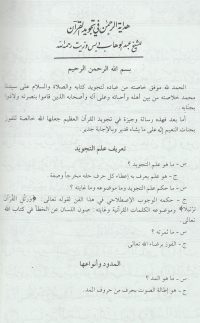 هداية الرحمن في تجويد القرآن
للشيخ عبد الوهاب دبس وزيت رحمه الله
بسم الله الرحمن الرحيم
الحمد لله موفق خاصته من عباده لتجويد كتابه والصلاة والسلام على سيدنا
محمد خلاصته من بين أهله وأحبائه وعلى آله وأصحابه الذين قاموا بنصرته ولاذوا
بجنابه
أما بعد فهذه رسالة وجيزة في تجويد القرآن العظيم جعلها الله خالصة للفوز
بجنات النعيم إنه على ما يشاء قدير وبالإجابة جدير
تعريف علم التجويد
س - ما هو علم التجويد ؟
ج - هو علم يعرف به إعطاء كل حرف حقه مخرجاً وصفة
س - ما حكم علم التجويد وما موضوعه وما غايته ؟
ج - حكمه الوجوب الإصطلاحي في هذا الفن لقوله تعالى: ﴿وَرَتِّلِ القُرْآنَ
تَرْتِيلاً﴾ وموضوعه الكلمات القرآنية وغايته: صون اللسان عن الخطأ في كتاب الله
تعالى
س - ما ثمرته ؟
ج - الفوز برضاء الله تعالى
المدود وأنواعها
س - ما هو المد ؟
ج - هو إطالة الصوت بحرف من حروف المد